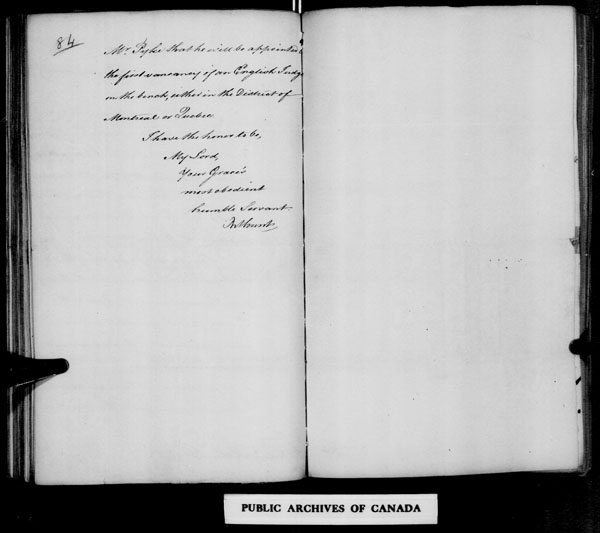 84
Mr. Pyke that he will be appointed
the first vancancy of an English Judge
on the bench, either in the District of
Montreal or Quebec
I have the honor to be,
My Lord,
Your Grace's
most obedient
humble Servant
PUBLIC ARCHIVES OF CANADA